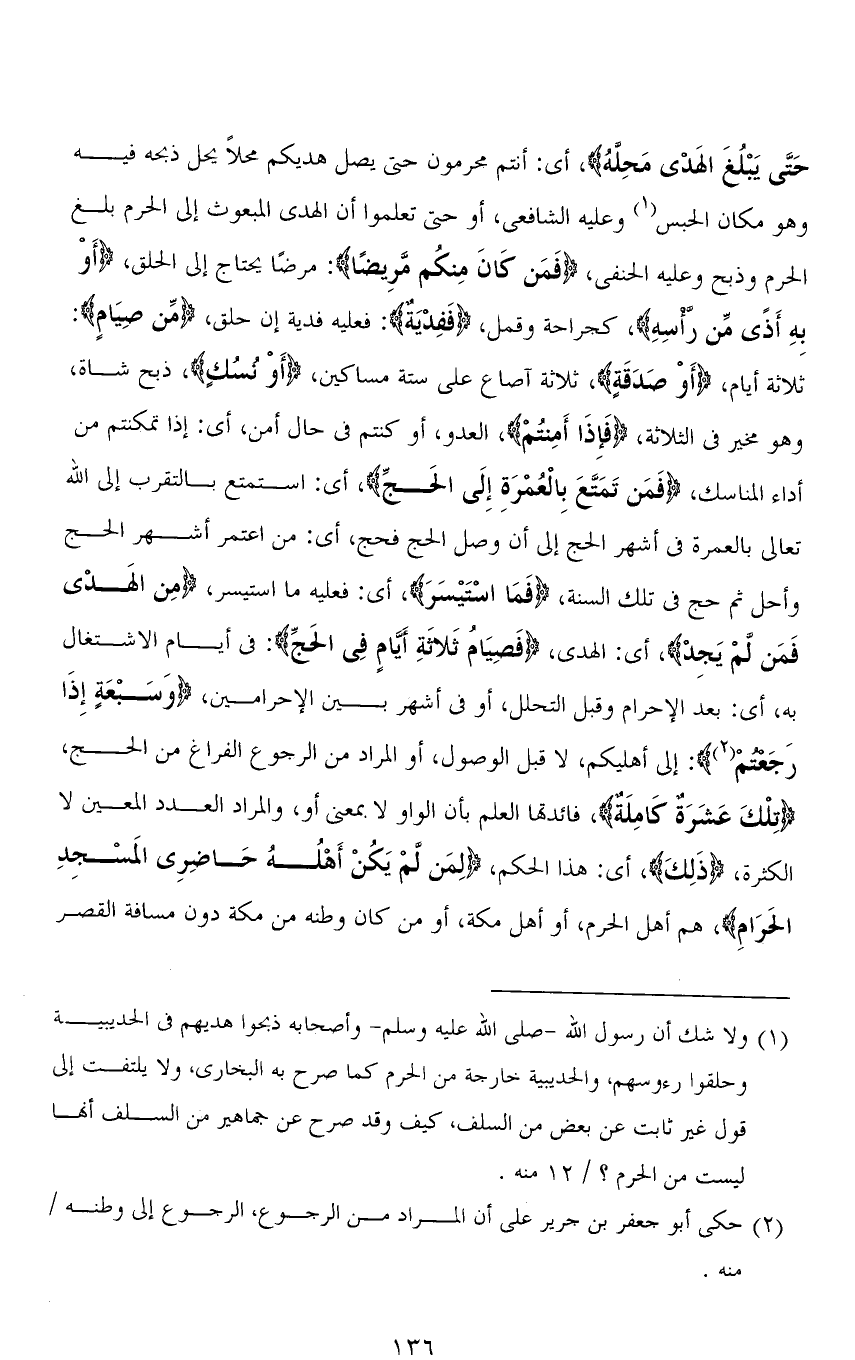 حَتَّى يَبْلُغَ الهَدْى مَحِلَّهُ﴾، أى: أنتم محرمون حتى يصل هديكم محلاً يحل ذبحه فيـــه
وهو مكان الحبس(١) وعليه الشافعى، أو حتى تعلموا أن الهدى المبعوث إلى الحرم بلـغ
الحرم وذبح وعليه الحنفى، ﴿فَمَن كَانَ مِنكُم مَّرِيضًا﴾: مرضًا يحتاج إلى الحلق، ﴿أَوْ
بِهِ أَذًى مِّن رَّأْسِهِ﴾، كجراحة وقمل، ﴿فَفِدْيَةٌ﴾: فعليه فدية إن حلق، ﴿مِّن صِيَامٍ﴾:
ثلاثة أيام، ﴿أَوْ صَدَقَةٍ﴾، ثلاثة آصاع على ستة مساكين، ﴿أَوْ نُسُكٍ﴾، ذبح شـاة،
وهو مخير فى الثلاثة، ﴿فَإِذَا أَمِنتُمْ﴾، العدو، أو كنتم فى حال أمن، أى: إذا تمكنتم من
أداء المناسك، ﴿فَمَن تَمَتَّعَ بِالْعُمْرَةِ إِلَى الحَـــجِّ﴾، أى: اســـتمتع بـــالتقرب إلى الله
تعالى بالعمرة فى أشهر الحج إلى أن وصل الحج فحج، أى: من اعتمر أشـــهر الحـــج
وأحل ثم حج فى تلك السنة، ﴿فَمَا اسْتَيْسَرَ﴾، أى: فعليه ما استيسر، ﴿مِن الهَـــدْى
فَمَن لَّمْ يَجِدْ﴾، أى: الهدى، ﴿فَصِيَامُ ثَلاثَةِ أَيَّامٍ فِى الحَجِّ﴾: فى أيـــام الاشـــتغال
به، أى: بعد الإحرام وقبل التحلل، أو فى أشهر بـــين الإحرامـــين، ﴿وَسَـــبْعَةٍ إِذَا
رَجَعْتُمْ(٢)﴾: إلى أهليكم، لا قبل الوصول، أو المراد من الرجوع الفراغ من الحـــج،
﴿تِلْكَ عَشَرَةٌ كَامِلَةٌ﴾، فائدتها العلم بأن الواو لا بمعنى أو، والمراد العـــدد المعـــين لا
الكثرة، ﴿ذَلِكَ﴾، أى: هذا الحكم، ﴿لِمَن لَّمْ يَكُنْ أَهْلُـــهُ حَـــاضِرِى المَسْـــجِدِ
الحَرَامِ﴾، هم أهل الحرم، أو أهل مكة، أو من كان وطنه من مكة دون مسافة القصر
(١) ولا شك أن رسول الله -صلى الله عليه وسلم- وأصحابه ذبحوا هديهم فى الحديبيـــة
وحلقوا رءوسهم، والحديبية خارجة من الحرم كما صرح به البخارى، ولا يلتفـــت إلى
قول غير ثابت عن بعض من السلف، كيف وقد صرح عن جماهير من الســـلف أنهـــا
ليست من الحرم ؟ / ١٢ منه .
(٢) حكى أبو جعفر بن جرير على أن المـــراد مـــن الرجـــوع، الرجـــوع إلى وطنـــه /
منه .
١٣٦